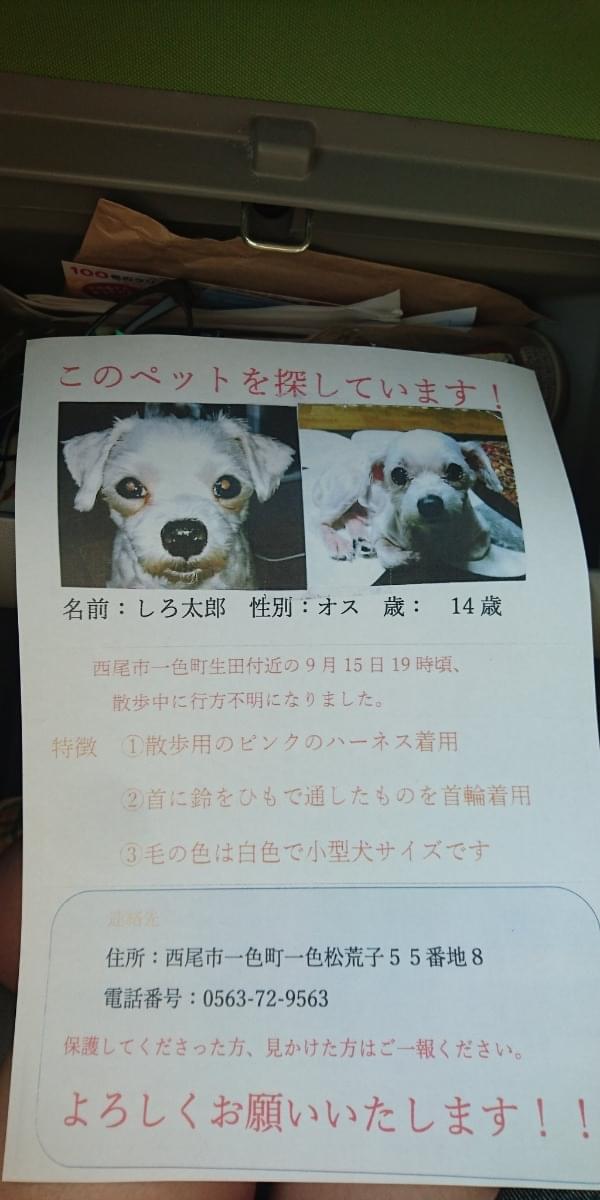 100
このペットを探しています！
名前：しろ太郎　性別：オス　歳：　14歳
西尾市一色町生田付近の9月15日19時頃、
散歩中に行方不明になりました。
特徴　①散歩用のピンクのハーネス着用
②首に鈴をひもで通したものを首輪着用
③毛の色は白色で小型犬サイズです
連絡先
住所：西尾市一色町一色松荒子５５番地８
電話番号：0563-72-9563
保護してくださった方、見かけた方はご一報ください。
よろしくお願いいたします！！